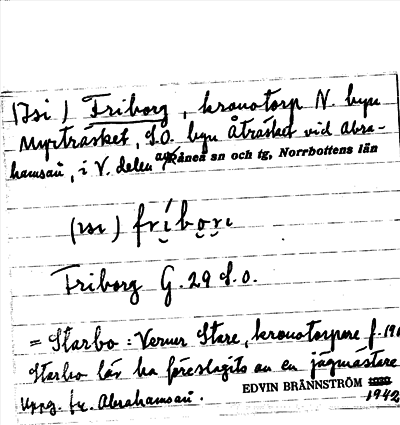 (Isi) Friborg, kronotorp N. byn
Myrträsket, S.O. byn Åträsket vid Abra-
hamsån, i V. delen av Råneå sn och tg, Norrbottens län
(ısı) fríbo̤r̤ı
Friborg G. 29 S.O.
= Starbo: Verner Stare, kronotorpare f. 19
Starbo lär ha föreslagits av en jägmästare
Uppg. fr. Abrahamsån. EDVIN BRÄNNSTRÖM
1942